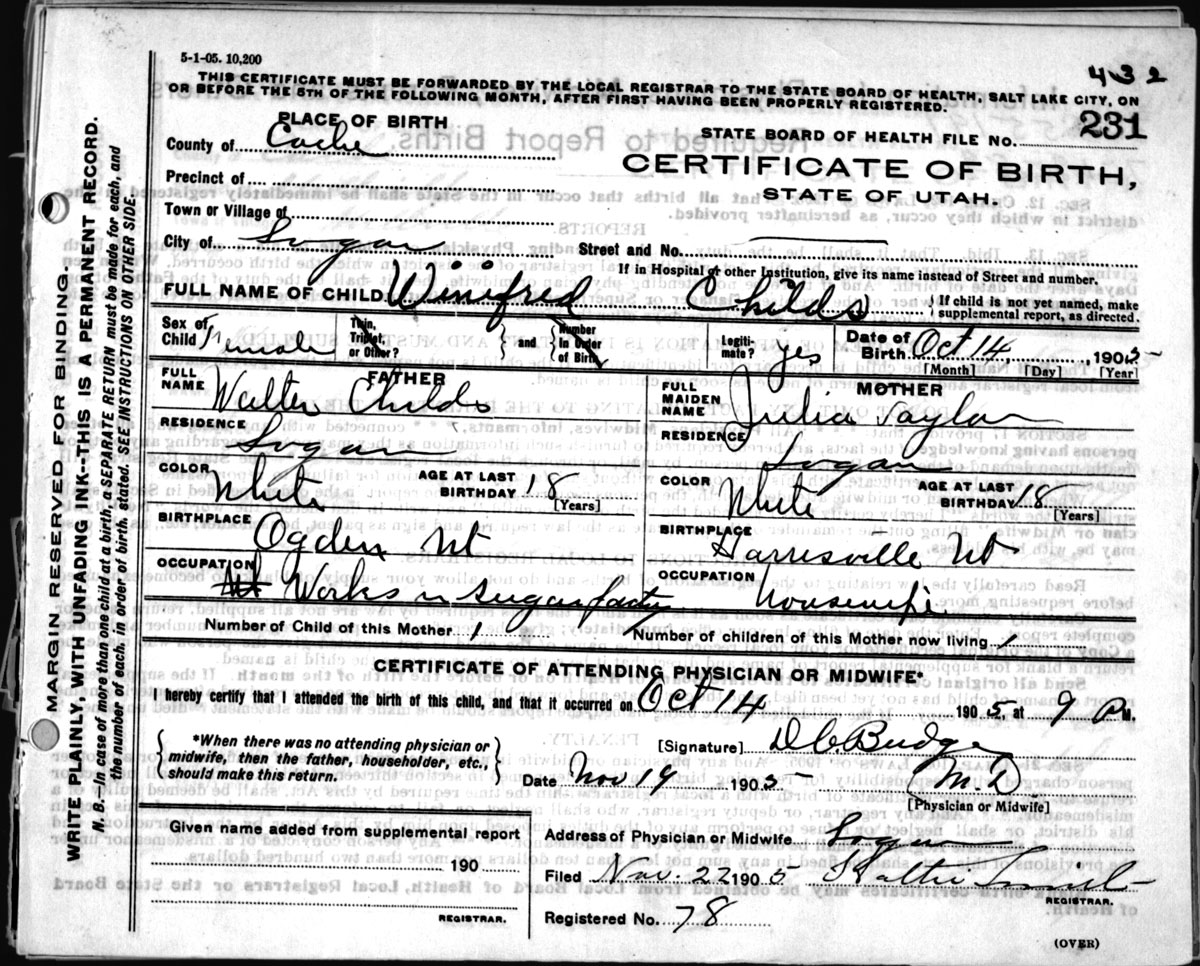 5-1-05. 10,200
432
THIS CERTIFICATE MUST BE FORWARDED BY THE LOCAL REGISTRAR TO THE STATE BOARD OF HEALTH, SALT LAKE CITY, ON
OR BEFORE THE 5TH OF THE FOLLOWING MONTH, AFTER FIRST HAVING BEEN PROPERLY REGISTERED.
PLACE OF BIRTH
STATE BOARD OF HEALTH FILE NO. 231
County of Cache
CERTIFICATE OF BIRTH,
STATE OF UTAH.
Precinct of
Town or Village of
City of Logan Street and No.
If in Hospital or other Institution, give its name instead of Street and number.
FULL NAME OF CHILD Winifred Childs { If child is not yet named, make
supplemental report, as directed.
Sex of Child Female Twin, Triplet, or Other? { and } Number in Order of Birth Legiti-mate? yes Date of Birth Oct 14, 1905
[Month] [Day] [Year]
FATHER
FULL NAME Walter Childs
RESIDENCE Logan
COLOR White AGE AT LAST BIRTHDAY 18 [Years]
BIRTHPLACE Ogden Ut
OCCUPATION Works in Sugar factory
MOTHER
FULL MAIDEN NAME Julia Taylor
RESIDENCE Logan
COLOR White AGE AT LAST BIRTHDAY 18 [Years]
BIRTHPLACE Harrisville Ut
OCCUPATION Housewife
Number of Child of this Mother 1 Number of children of this Mother now living 1
CERTIFICATE OF ATTENDING PHYSICIAN OR MIDWIFE*
I hereby certify that I attended the birth of this child, and that it occurred on Oct 14 1905, at 9 P M.
{ *When there was no attending physician or
midwife, then the father, householder, etc.,
should make this return. }
[Signature] D C Budge
Date Nov 19 1905 M. D
[Physician or Midwife]
Given name added from supplemental report
190
REGISTRAR.
Address of Physician or Midwife Logan
Filed Nov. 22 1905
REGISTRAR.
Registered No. 78
(OVER)
MARGIN RESERVED FOR BINDING.
WRITE PLAINLY, WITH UNFADING INK--THIS IS A PERMANENT RECORD.
N. B.--In case of more than one child at a birth, a SEPARATE RETURN must be made for each, and
the number of each, in order of birth, stated. SEE INSTRUCTIONS ON OTHER SIDE.